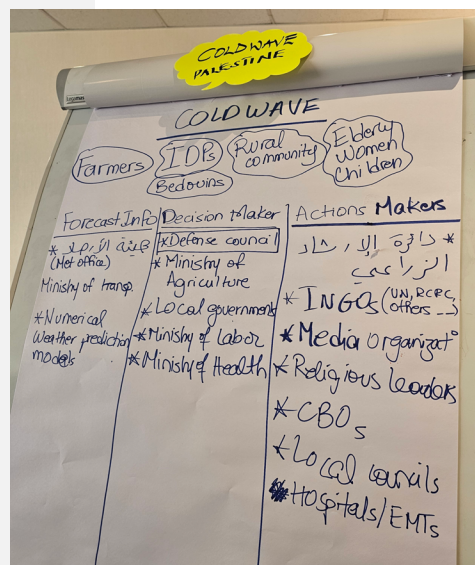 COLDWAVE
PALESTINE
Legamaster
COLDWAVE
Farmers
IDPs
Bedouins
Rural
community
Elderly
Women
Children
Forecast Info
* هيئة الأرصاد
(Met office)
Ministry of transp.
* Numerical
Weather prediction
models
Decision Maker
* Defense council
* Ministry of
Agriculture
* Local government
* Ministry of Labor
* Ministry of Health
Actions Makers
* دائرة الارشاد
الزراعي
* INGOs (UN, RCRC,
others --)
* Media organizat°
* Religious leaders
* CBOs
* Local councils
* Hospitals/EMTs